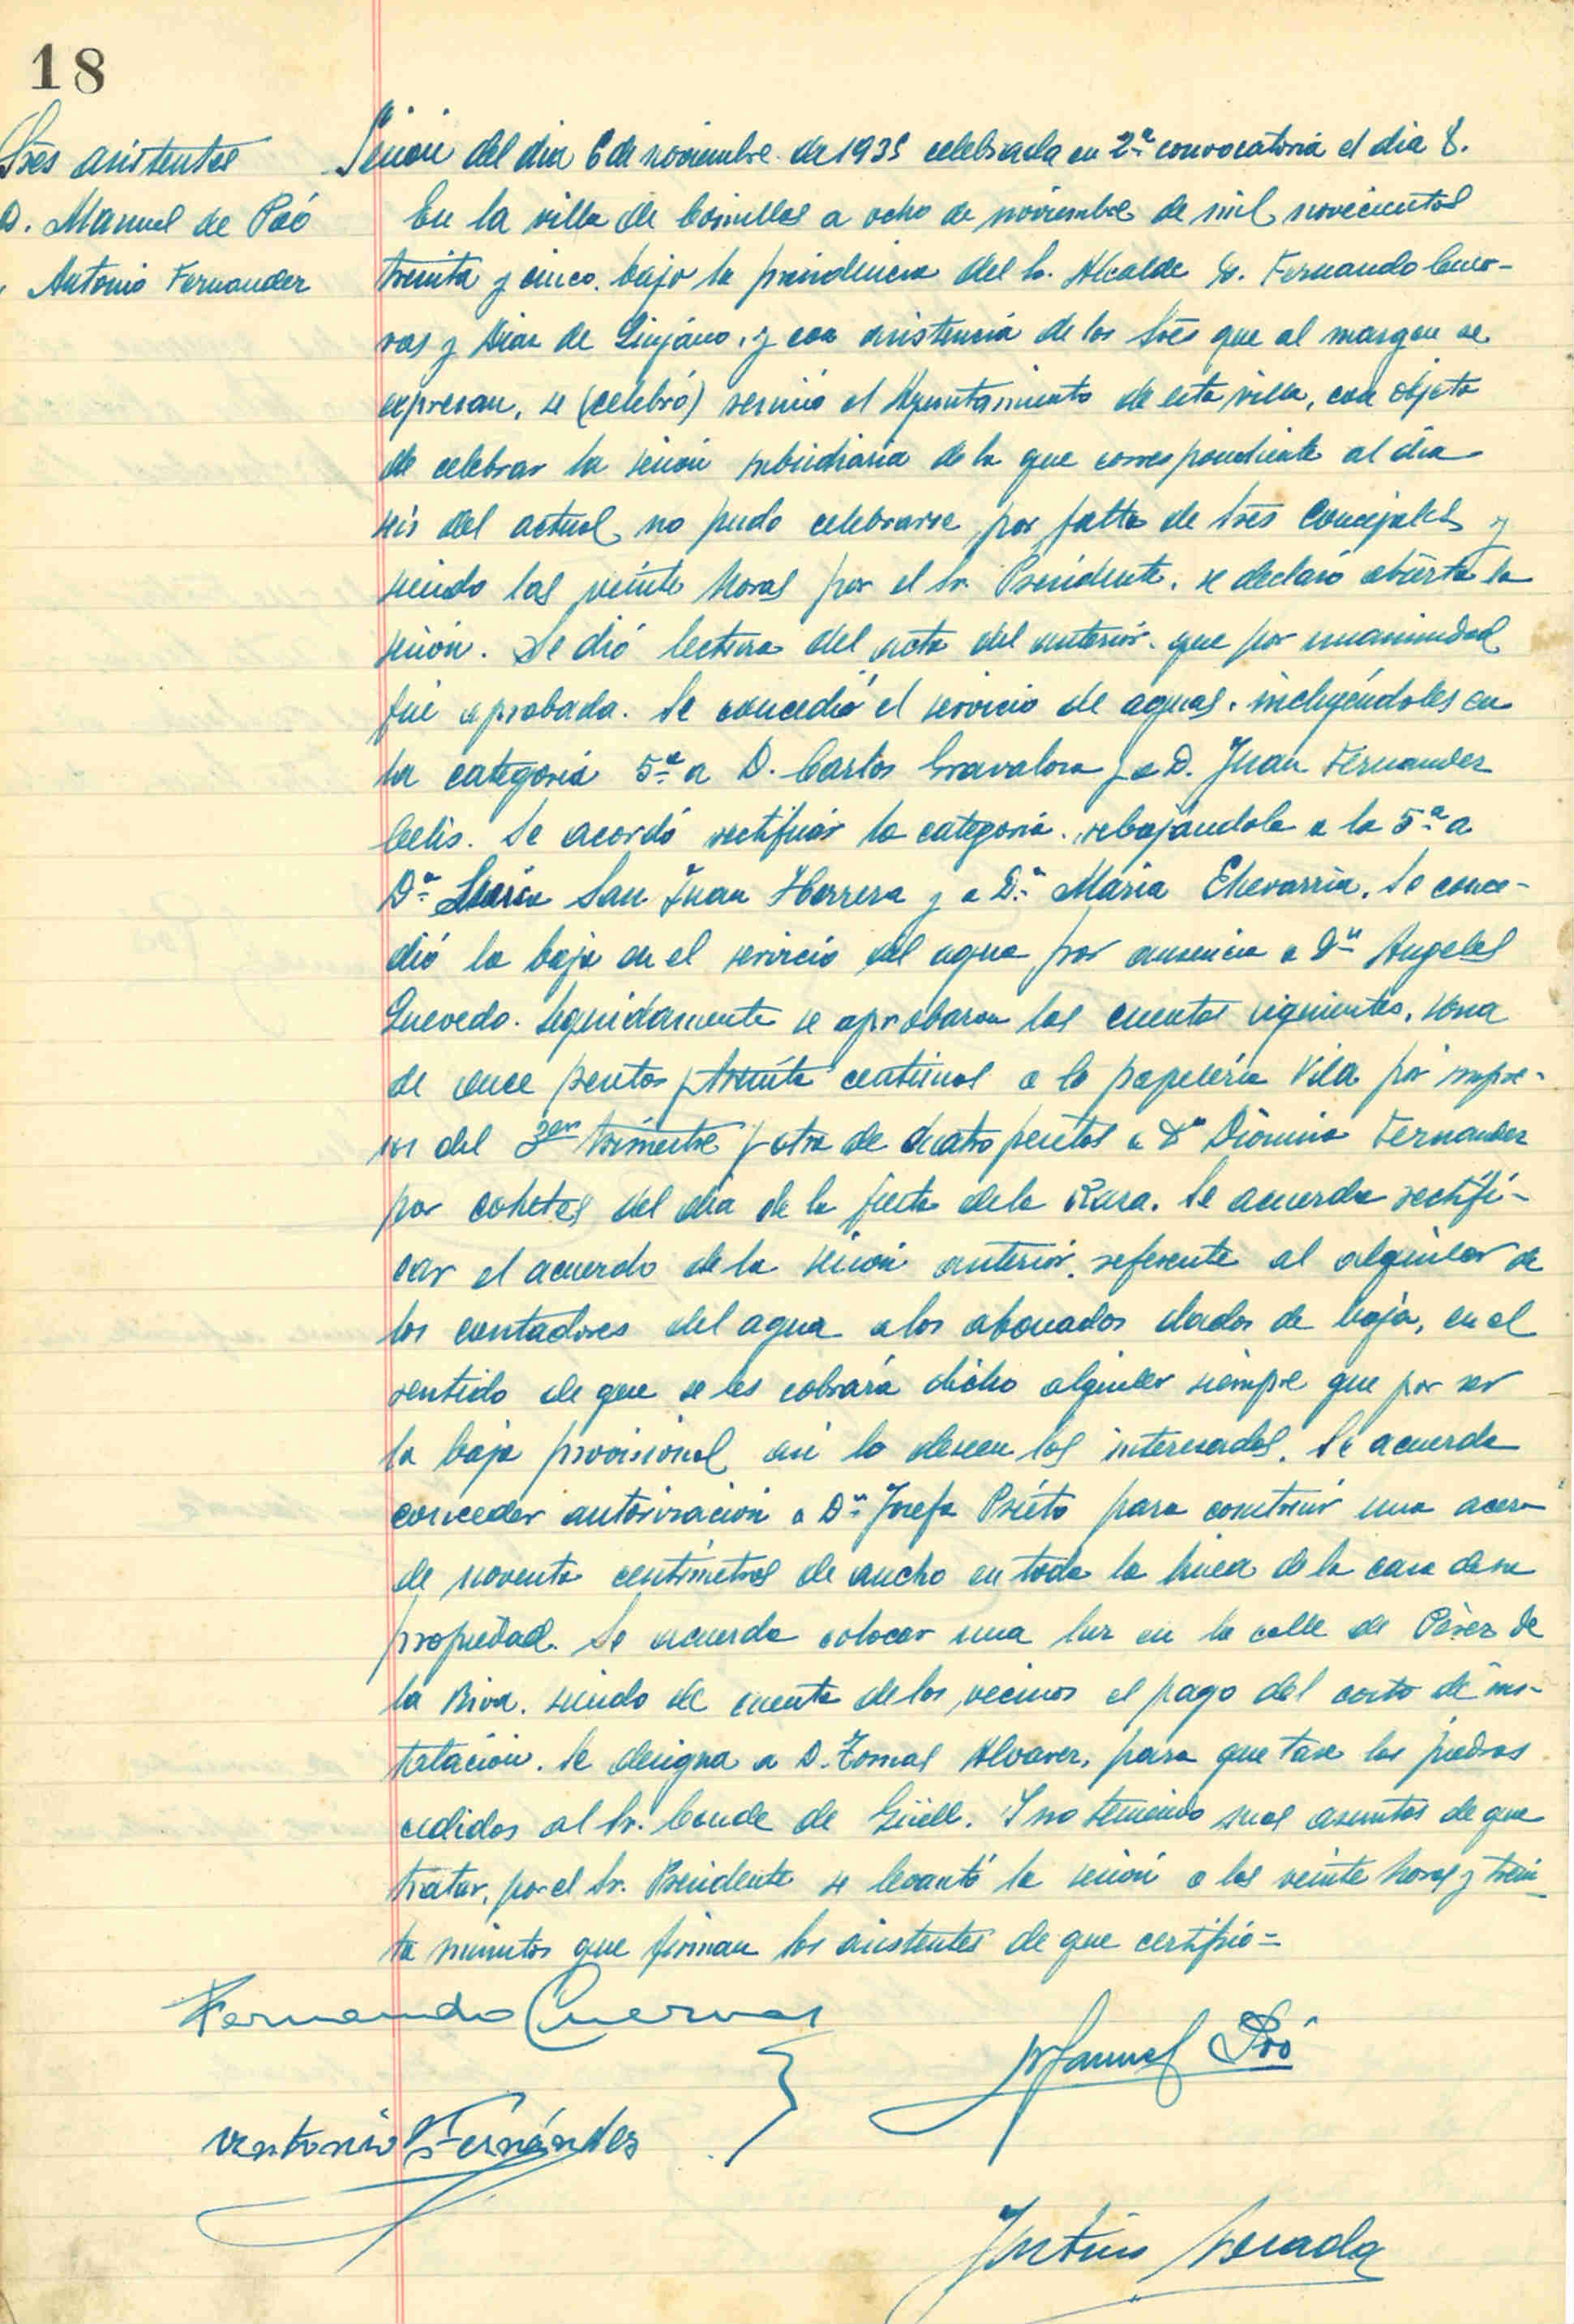 18
Sres asistentes
D. Manuel de Poó
" Antonio Fernandez
Sesión del dia 6 de noviembre de 1935 celebrada en 2ª convocatoria el dia 8.
En la villa de Comillas a ocho de noviembre de mil novecientos
treinta y cinco, bajo la presidencia del Sr. Alcalde D. Fernando Cuer-
vas y Diaz de Quijano, y con asistencia de los Sres que al margen se
expresan, se (celebró) reunió el Ayuntamiento de esta villa, con objeto
de celebrar la sesión subsidiaria de la que correspondiente al dia
seis del actual no pudo celebrarse por falta de Sres Concejales y
siendo las veinte horas por el Sr. Presidente, se declaró abierta la
sesión. Se dió lectura del acta del anterior, que por unanimidad
fue aprobada. Se concedió el servicio de aguas, incluyéndoles en
la categoria 5ª a D. Carlos Gravalosa y a D. Juan Fernandez
Celis. Se acordó rectificar la categoria, rebajandola a la 5ª a
Dª San Juan Herrera y a Dª Maria Echevarria. Se conce-
dió la baja en el servicio del agua por ausencia a Dª Angeles
Quevedo. Seguidamente se aprobaron las cuentas siguientes, una
de once pesetas treinta centimos a la papeleria Vila por impre-
sos del 3er trimestre y otra de cuatro pesetas a Dª Dionisia Fernandez
por cohetes del dia de la fiesta de la Raza. Se acuerda rectifi-
car el acuerdo de la sesión anterior, referente al alquiler de
los contadores del agua a los abonados dados de baja, en el
sentido de que se les cobrará dicho alquiler siempre que por ser
la baja provisional asi lo deseen los interesados. Se acuerda
conceder autorización a Dª Josefa Prieto para construir una acera
de noventa centimetros de ancho en toda la linea de la casa de su
propiedad. Se acuerda colocar una luz en la calle de Pérez de
la Riva, siendo de cuenta de los vecinos el pago del costo de ins-
talación. Se designa a D. Tomas Alvarez, para que tase las piedras
cedidas al Sr. Conde de Güell. Y no teniendo mas asuntos de que
tratar, por el Sr. Presidente se levantó la sesión a las veinte horas y trein-
ta minutos que firman los asistentes de que certifico=
Fernando Cuervas
Manuel Poó
Antonio Fernández